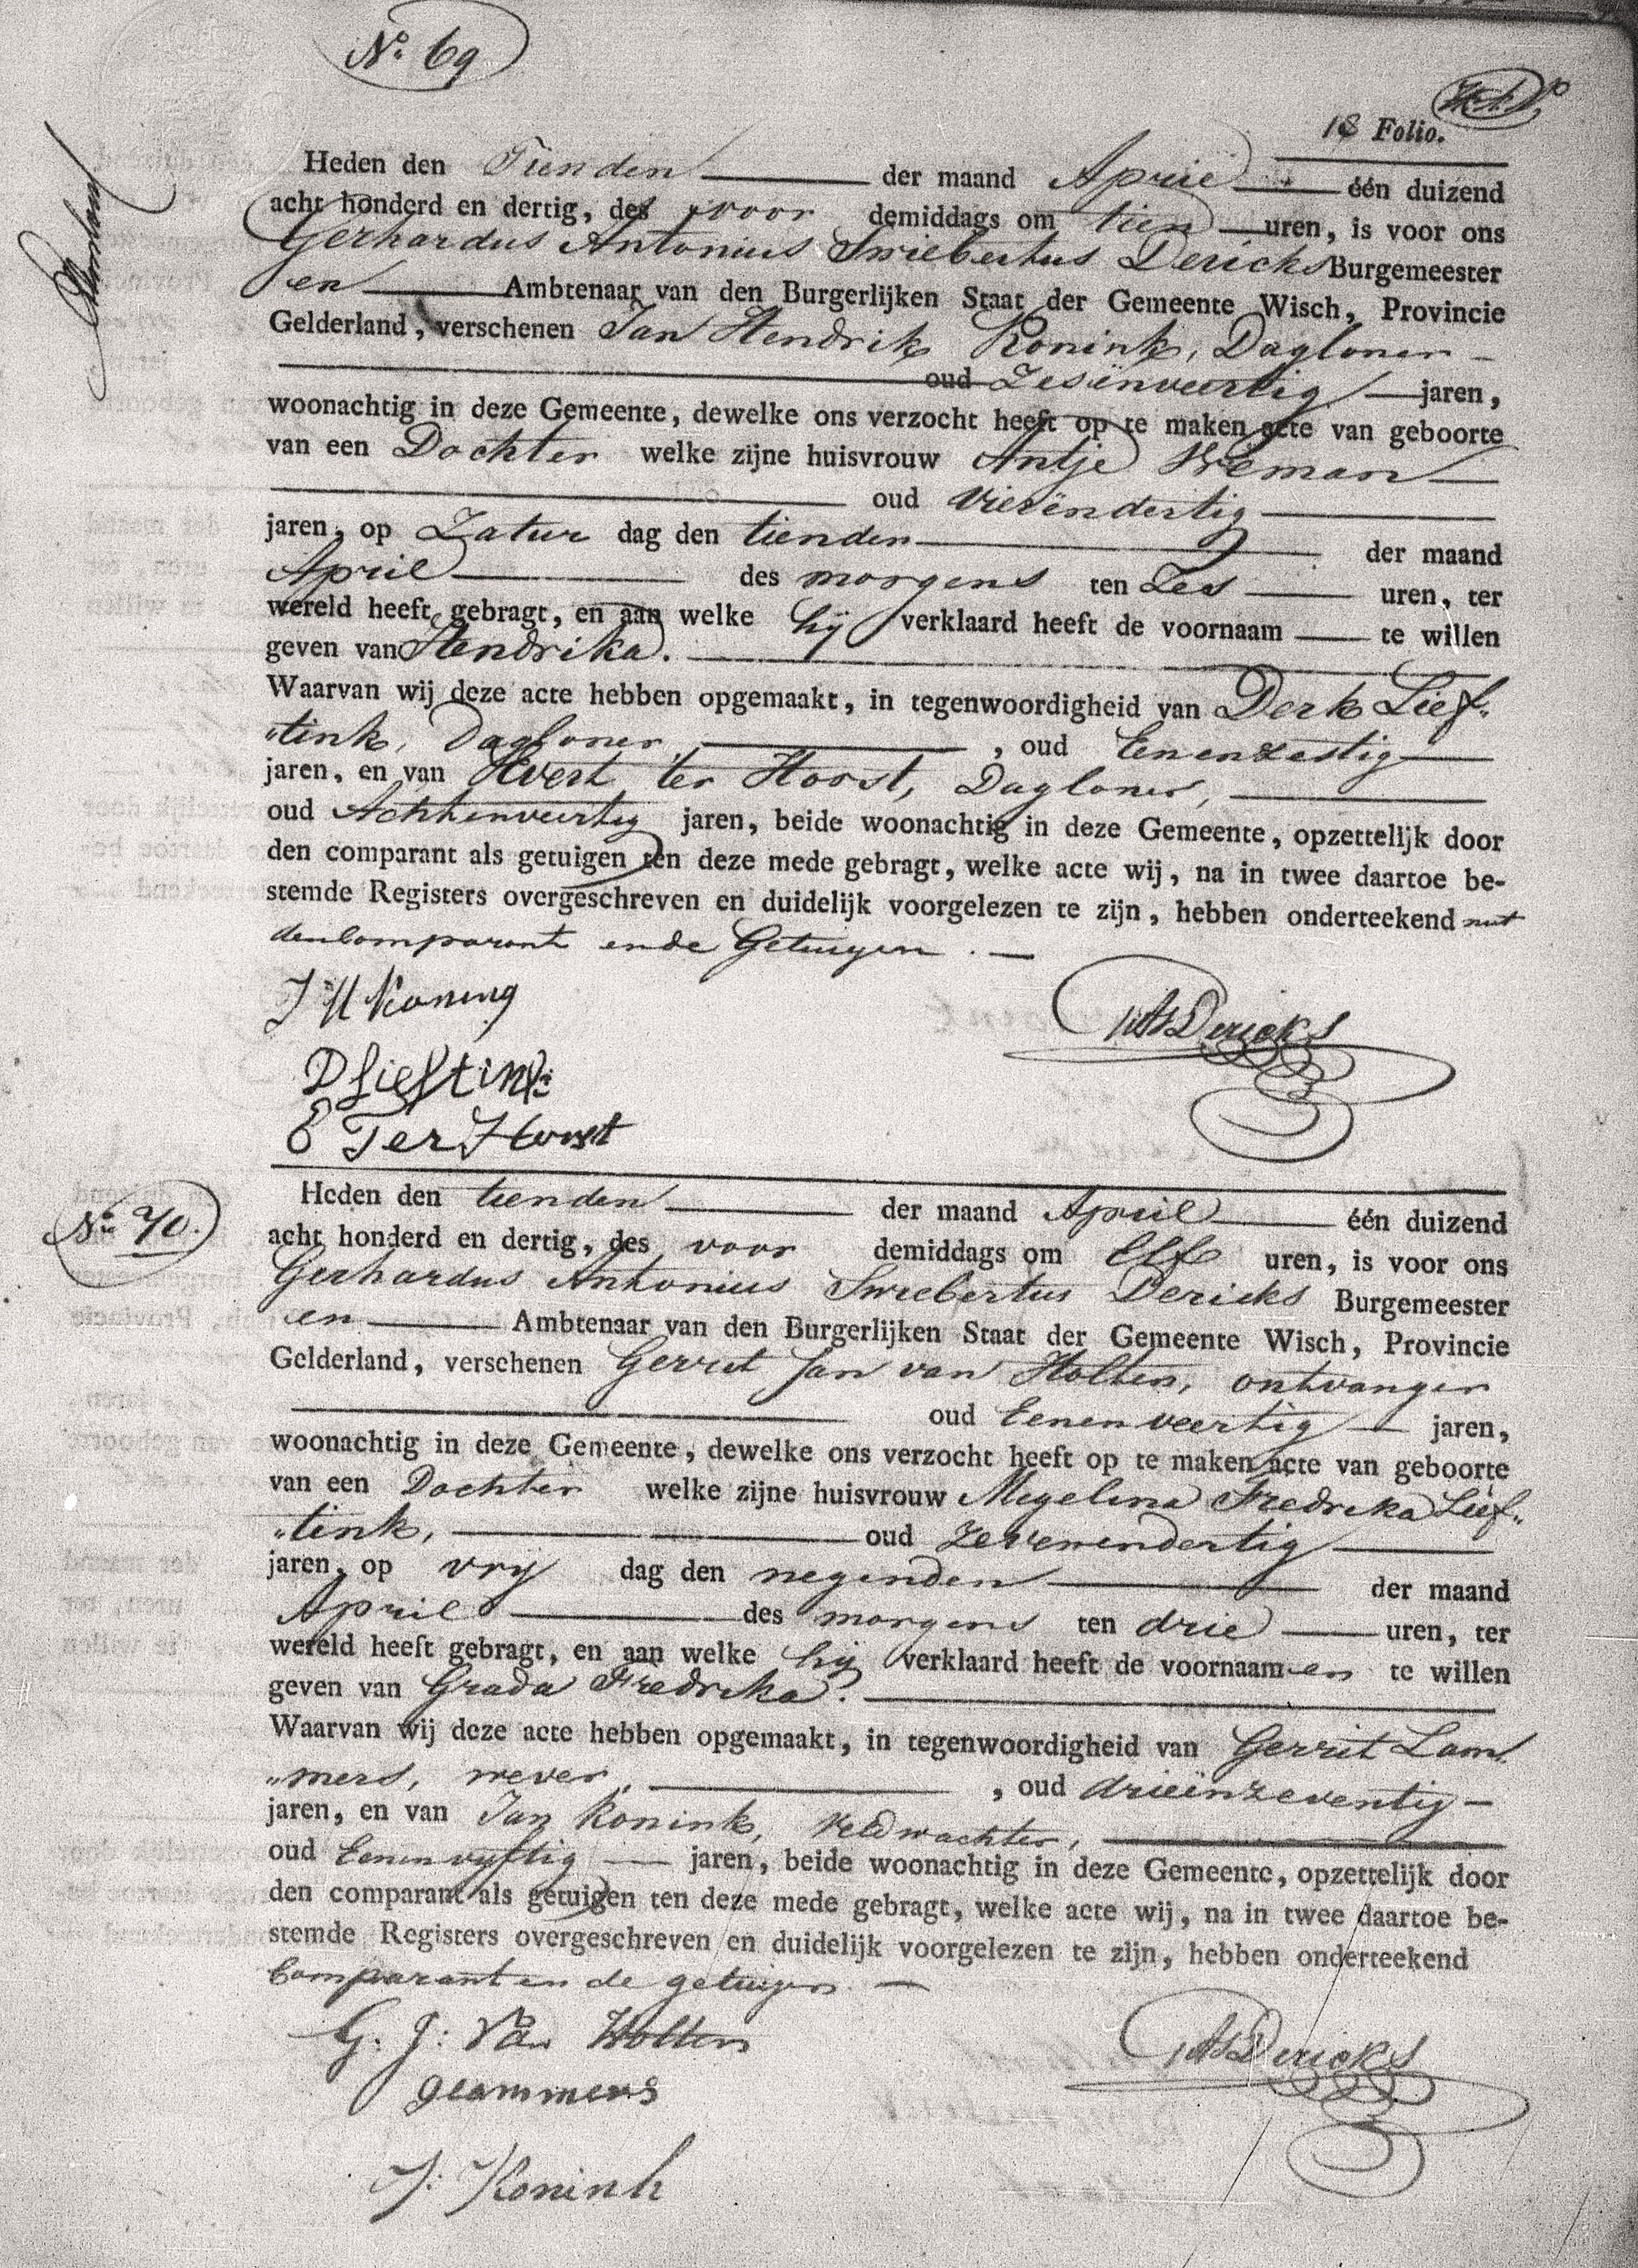 No. 69
18 Folio.
Heden den Tienden der maand April één duizend
acht honderd en dertig, des voor demiddags om tien uren, is voor ons
Gerhardus Antonius Swiebertus Dericks Burgemeester
en Ambtenaar van den Burgerlijken Staat der Gemeente Wisch, Provincie
Gelderland, verschenen Jan Hendrik Konink, Dagloner
oud Zesënveertig jaren,
woonachtig in deze Gemeente, dewelke ons verzocht heeft op te maken acte van geboorte
van een Dochter welke zijne huisvrouw Antje Vreman
oud vierëndertig
jaren, op Zatur dag den tienden der maand
April des morgens ten Zes uren, ter
wereld heeft gebragt, en aan welke hij verklaard heeft de voornaam te willen
geven van Hendrika.
Waarvan wij deze acte hebben opgemaakt, in tegenwoordigheid van Derk Lief„
„tink, Dagloner, oud Eenenzestig
jaren, en van Evert ter Horst, Dagloner,
oud Achtenveertig jaren, beide woonachtig in deze Gemeente, opzettelijk door
den comparant als getuigen ten deze mede gebragt, welke acte wij, na in twee daartoe be-
stemde Registers overgeschreven en duidelijk voorgelezen te zijn, hebben onderteekend met
den Comparant en de Getuigen.
J H Koning
GAS Dericks
D Lieftink
E Ter Horst
No. 70.
Heden den tienden der maand April één duizend
acht honderd en dertig, des voor demiddags om Elf uren, is voor ons
Gerhardus Antonius Swiebertus Dericks Burgemeester
en Ambtenaar van den Burgerlijken Staat der Gemeente Wisch, Provincie
Gelderland, verschenen Gerrit Jan van Holten, ontvanger
oud Eenenveertig jaren,
woonachtig in deze Gemeente, dewelke ons verzocht heeft op te maken acte van geboorte
van een Dochter welke zijne huisvrouw Megelina Fredrika Lief„
„tink, oud Zevenendertig
jaren, op vrij dag den negenden der maand
April des morgens ten drie uren, ter
wereld heeft gebragt, en aan welke hij verklaard heeft de voornaamen te willen
geven van Grada Fredrika.
Waarvan wij deze acte hebben opgemaakt, in tegenwoordigheid van Gerrit Lam„
„mers, wever, oud drieënzeventig
jaren, en van Jan Konink, Veldwachter,
oud Eenenvyftig jaren, beide woonachtig in deze Gemeente, opzettelijk door
den comparant als getuigen ten deze mede gebragt, welke acte wij, na in twee daartoe be-
stemde Registers overgeschreven en duidelijk voorgelezen te zijn, hebben onderteekend
Comparant en de getuigen.
G. J: Van Holten
GAS Dericks
G Lammers
J: Konink